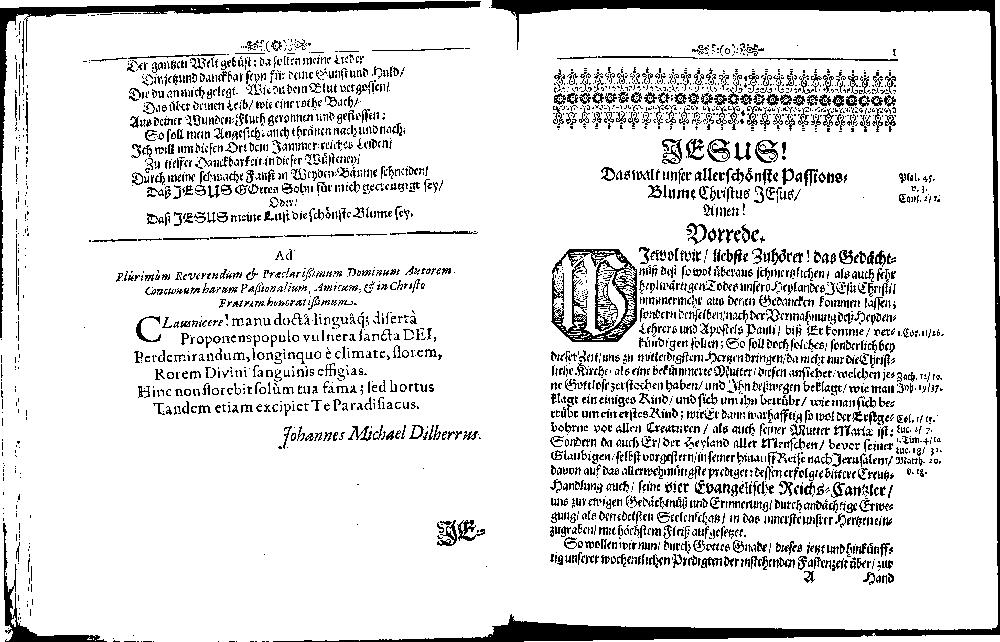 Der gantzen Welt gebüst: da sollen meine Lieder
Einjetzund danckbar seyn für deine Gunst und Huld/
Die du an mich gelegt. Wie du dein Blut vergossen/
Das über deinen Leib/ wie eine rothe Bach/
Aus deiner Wunden-Fluth geronnen und geflossen:
So soll mein Angesicht auch thränen nach und nach.
Ich will um diesen Ort dem Jammer-reiches Leiden/
Zu tieffer Danckbarkeit in dieser Wüsteney/
Durch meine schwache Faust in Weyden-Bäume schneiden/
Daß JESUS GOttes Sohn für mich gecreutzigt sey/
Oder/
Daß JESUS meine Lust die schönste Blume sey.
Ad
Plurimùm Reverendum & Præclarissimum Dominum Autorem
Concionum harum Passionalium, Amicum, & in Christo
Fratrem honoratissimum.
CLaunicere! manu doctâ linguâq; disertâ
Proponens populo vulnera sancta DEI,
Per demirandum, longinquo è climate, florem,
Rorem Divini sanguinis effigias.
Hinc non florebit solùm tua fama; sed hortus
Tandem etiam excipiet Te Paradisiacus.
Johannes Michael Dilherrus.
JE-
1
JESUS!
Das walt unser allerschönste Passions-
Blume Christus JEsus/
Amen!
Psal. 45.
v. 3.
Cant. 2/1.
Vorrede.
WJewol wir/ liebste Zuhörer! das Gedächt-
nüß deß so wol überaus schmertzlichen/ als auch sehr
heylwärtigen Todes unsers Heylandes JEsu Christi
nimmermehr aus denen Gedancken kommen lassen;
sondern denselben/ nach der Vermahnung deß Heyden-
Lehrers und Apostels Pauli/ biß Er komme/ ver-
kündigen sollen; So soll doch solches/ sonderlich bey
dieser Zeit/ uns zu mitleidigstem Hertzen dringen/ da nicht nur die Christ-
liche Kirche/ als eine bekümmerte Mutter/ diesen ansiehet/ welchen je-
ne Gottlose zerstochen haben/ und Jhn deßwegen beklagt/ wie man
klagt ein einiges Kind/ und sich um ihn betrübt/ wie man sich be-
trübt um ein erstes Kind; wie Er dann warhafftig so wol der Erstge-
bohrne vor allen Creaturen/ als auch seiner Mutter Mariæ ist:
Sondern da auch Er/ der Heyland aller Menschen/ bevor seiner
Glaubigen/ selbst vorgestern/ in seiner hinauff Reise nach Jerusalem/
davon auf das allerwehmütigste prediget: dessen erfolgte bittere Creutz-
Handlung auch/ seine vier Evangelische Reichs-Cantzler/
uns zur ewigen Gedächtnüß und Erinnerung/ durch andächtige Erwe-
gung/ als den edelsten Seelenschatz/ in das innerste unser Hertzen ein-
zugraben/ mit höchstem Fleiß aufgesetzet.
So wollen wir nun/ durch Gottes Gnade/ dieses jetzt und hinkünff-
tig unserer wochentlichen Predigten der instehenden Fastenzeit über/ zur
1. Cor. 11/26.
Zach. 12/10.
Joh. 19/37.
Col. 1/15.
Luc. 2/7.
1. Tim. 4/10.
Luc. 18/31.
Matth. 20.
v. 18.
A
Hand